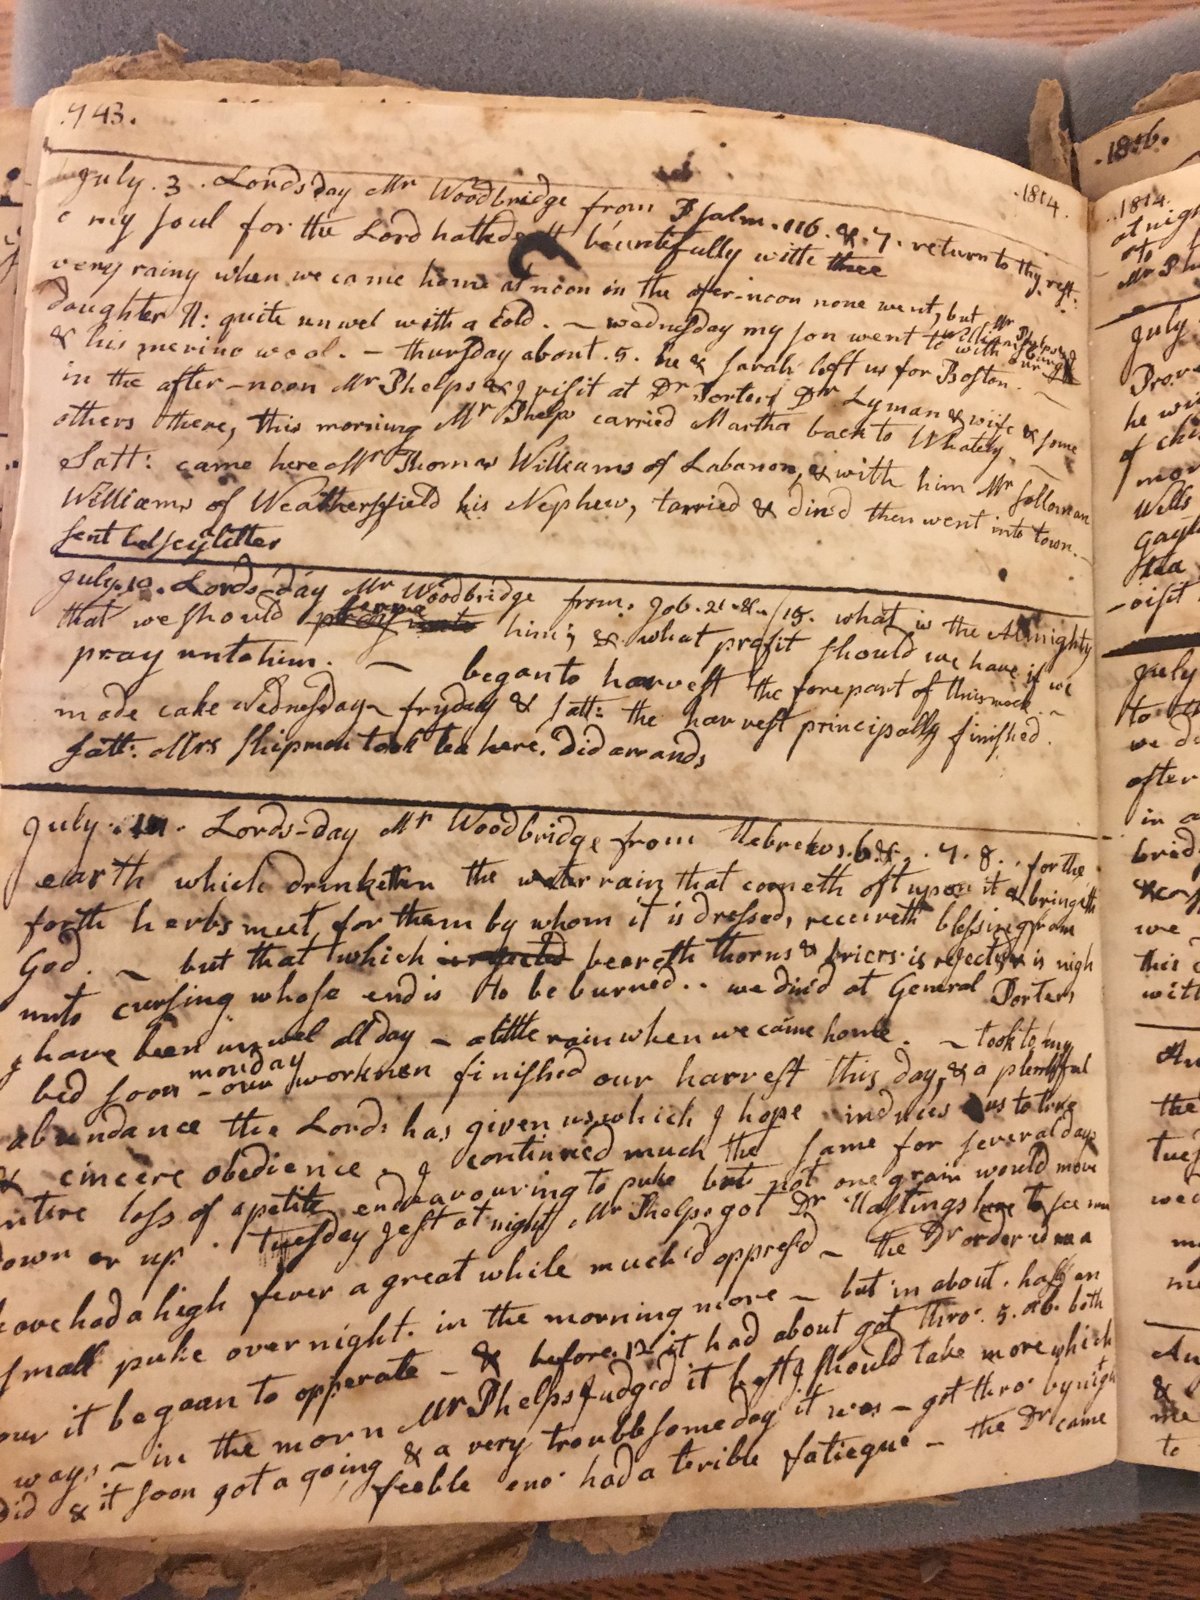 743.
1814.
July. 3. Lords day Mr Woodbridge from Psalm. 116. & 7. return to thy rest.
o my soul for the Lord hath dealt bountifully with thee
very rainy when we came home at noon in the after-noon none went, but Mr Phelps &
daughter
quite unwel with a Cold. — wednesday my son went to Williamsburg
with our
& his merino wool. — thursday about. 5. he & Sarah left us for Boston. —
in the after-noon Mr Phelps & I visit at Dr Porters Dr Lyman & wife & some
others there, this morning Mr Phelps carried Martha back to Whately. —
Satt: came here Mr Thomas Williams of Labanon, & with him Mr Solloman
Williams of Weathersfield his Nephew, tarried & din'd then went into town. —
sent Betsey letter
July. 10. Lords-day Mr Woodbridge from. Job. 21. & /15. what is the Almighty
that we should serve him; & what profit should we have if we
pray unto him. — began to harvest the forepart of this week. —
made cake Wednesday — fryday & satt: the harvest principally finished.
satt: Mrs Shipman took tea here. Did arrands
July. 17. Lords-day Mr Woodbridge from Hebrews. 6 &. 7. 8. for the
earth which drinketh in the water rain that cometh oft upon it & bringeth
forth herbs meet for them by whom it is dressed, receiveth blessing from
God. — but that which beareth thorns & briers is rejected & is nigh
unto cursing whose end is to be burned.. we din'd at General Porters
I have been unwel all day — a little rain when we came home. — took to my
bed soon — monday our workmen finished our harvest this day, & a plentifful
abundance the Lord has given us, which I hope induces us to love
& cincere obedience. I continued much the same for several days
intire loss of apetite endeavouring to puke but not one grain would move
down or up. Tuesday jest at night Mr Phelps got Dr Hastings here to see me
have had a high fever a great while much'd oppress'd — the Dr order'd me a
small puke over night. in the morning more — but in about. half an
our it began to opperate — & before. 12 it had about got thro'. 5. ab. both
ways — in the morn Mr Phelps judg'd it best I should take more which
did & it soon got a going & a very troublesome day it was — got thro' by night
feeble eno' had a terible fatiegue — the Dr came
1816.
1814.
at night
to
Mr Ph
July
he wi
of chi
mor
Wells
Gayl
tea
visit
July
to th
we di
after
in a
brid
we
this
with
Au
the
tues
wed
me
Au
&
me
to